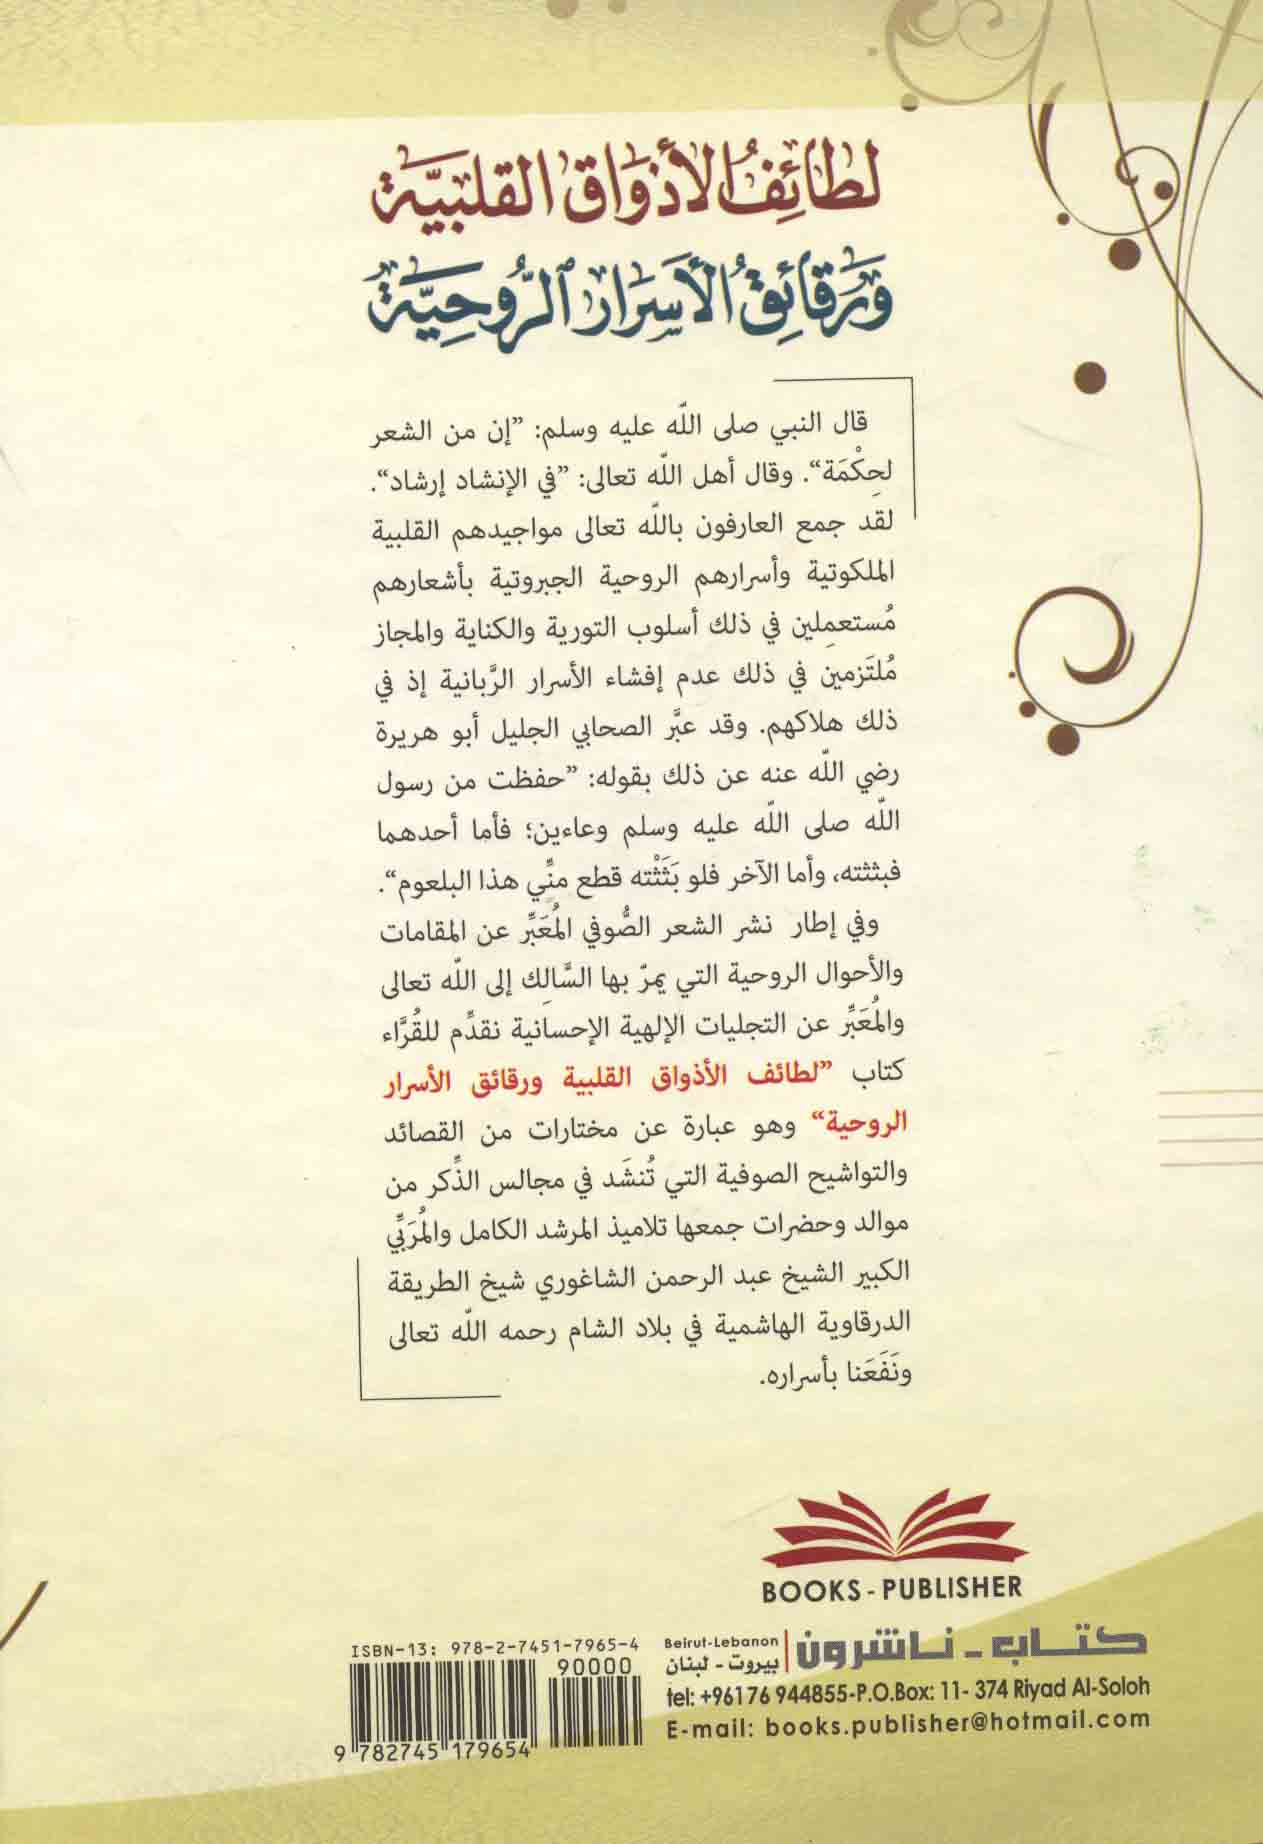 لطائف الأذواق القلبية
ورقائق الأسرار الروحية
قال النبي صلى الله عليه وسلم: ”إن من الشعر
لحِكْمَة“. وقال أهل الله تعالى: ”في الإنشاد إرشاد“.
لقد جمع العارفون بالله تعالى مواجيدهم القلبية
الملكوتية وأسرارهم الروحية الجبروتية بأشعارهم
مُستعمِلين في ذلك أسلوب التورية والكناية والمجاز
مُلتَزمين في ذلك عدم إفشاء الأسرار الرَّبانية إذ في
ذلك هلاكهم. وقد عبَّر الصحابي الجليل أبو هريرة
رضي الله عنه عن ذلك بقوله: ”حفظت من رسول
الله صلى الله عليه وسلم وعاءين؛ فأما أحدهما
فبثثته، وأما الآخر فلو بَثَثْته قطع منِّي هذا البلعوم“.
وفي إطار نشر الشعر الصُّوفي المُعَبِّر عن المقامات
والأحوال الروحية التي يمرّ بها السَّالِك إلى الله تعالى
والمُعَبِّر عن التجليات الإلهية الإحسانية نقدِّم للقُرَّاء
كتاب ”لطائف الأذواق القلبية ورقائق الأسرار
الروحية“ وهو عبارة عن مختارات من القصائد
والتواشيح الصوفية التي تُنشَد في مجالس الذِّكر من
موالد وحضرات جمعها تلاميذ المرشد الكامل والمُرَبِّي
الكبير الشيخ عبد الرحمن الشاغوري شيخ الطريقة
الدرقاوية الهاشمية في بلاد الشام رحمه الله تعالى
ونَفَعَنا بأسراره.
BOOKS - PUBLISHER
كتاب - ناشرون
Beirut-Lebanon
بيروت - لبنان
tel: +96176 944855-P.O.Box: 11- 374 Riyad Al-Soloh
E-mail: books.publisher@hotmail.com
ISBN-13: 978-2-7451-7965-4
90000
9 782745 179654